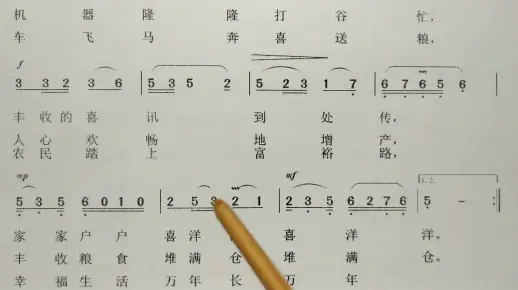 机 器 隆 隆 打 谷 忙,
车 飞 马 奔 喜 送 粮,
f
3 3 2 3 6 | 5 3 5 2 | 5 2 3 1 7 | 6 7 6 5 6 |
丰 收 的 喜 讯 到 处 传,
人 心 欢 畅 地 增 产,
农 民 踏 上 富 裕 路,
mp mf 1. 2.
5 3 5 6 0 1 0 | 2 5 3 2 1 | 2 3 5 6 2 7 6 | 5 - :|
家 家 户 户 喜 洋 喜 洋 洋。
丰 收 粮 食 堆 满 仓 堆 满 仓。
幸 福 生 活 万 年 长 万 年